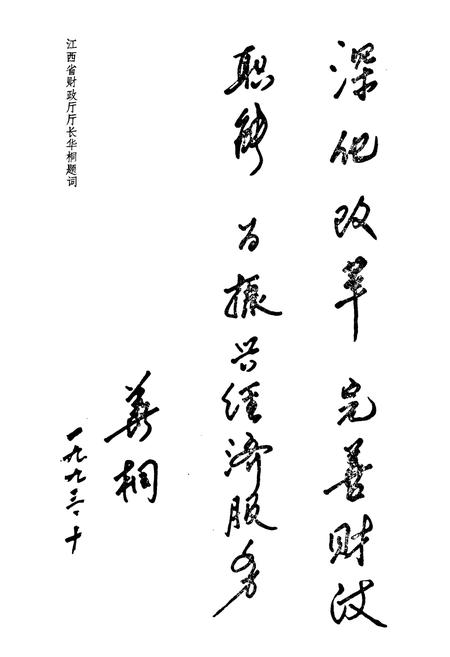 深化改革 完善财政
职能 为振兴经济服务
华桐
一九九三·十
江西省财政厅厅长华桐题词